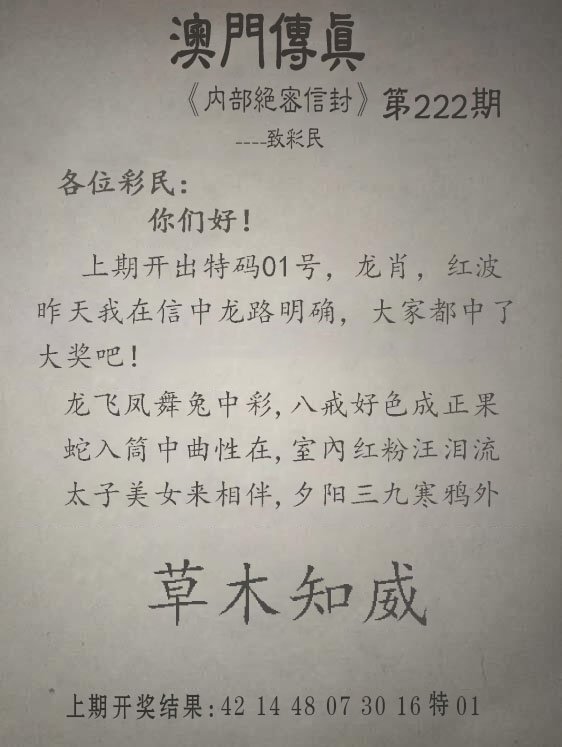 澳門傳眞
《内部絕密信封》第222期
----致彩民
各位彩民：
你们好！
上期开出特码01号，龙肖，红波
昨天我在信中龙路明确，大家都中了
大奖吧！
龙飞凤舞兔中彩,八戒好色成正果
蛇入筒中曲性在,室內红粉汪泪流
太子美女来相伴,夕阳三九寒鸦外
草木知威
上期开奖结果:42 14 48 07 30 16 特 01